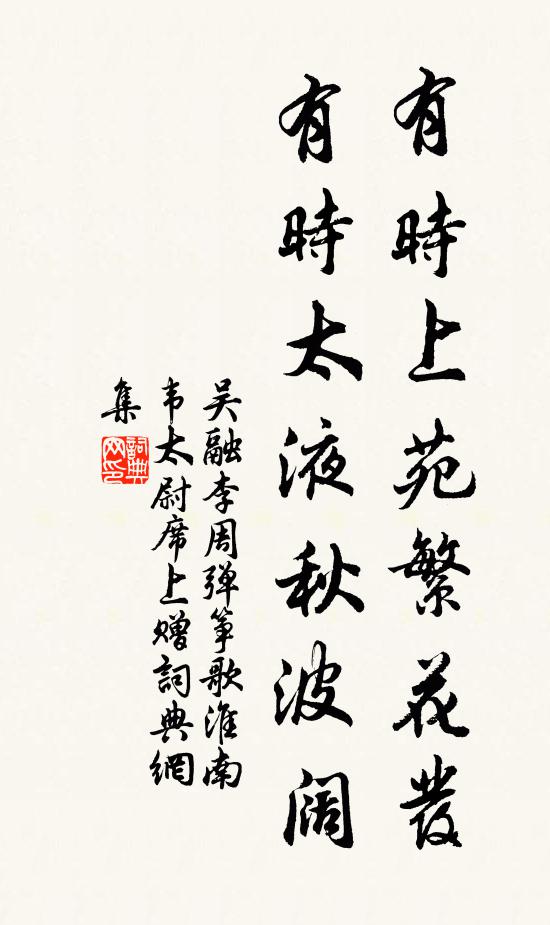 有時上苑繁花發
有時太液秋波阔
吴融李周弹筝歌淮南
韦太尉席上赠詞典網
集
詞典
网印